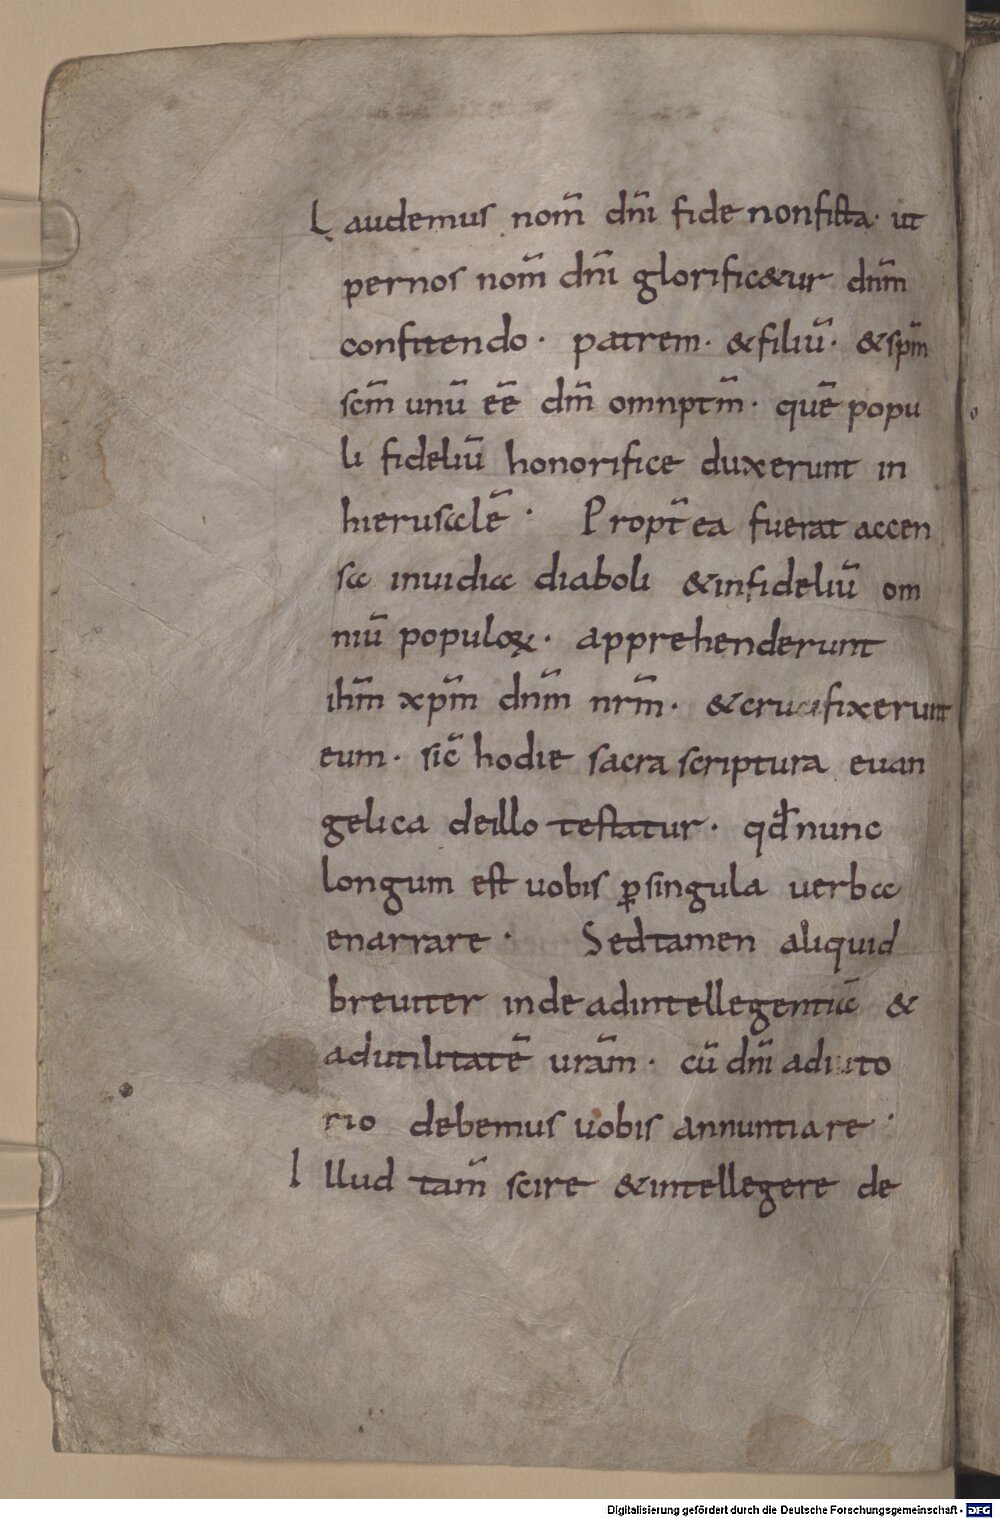 Laudemus nom̄ dn̄i fide nonficta· ut
pernos nom̄ dn̄i glorific&ur dn̄m
confitendo· patrem· &filiū· &sp̄m
sc̄m unū eē dm̄ omnptm̄· quē popu
li fideliū honorifice duxerunt in
hierusalē· Propt̄ea fuerat accen
sa inuidia diaboli &infideliū om
niū populoꝝ· apprehenderunt
ih̄m xp̄m dn̄m nr̄m· &crucifixerunt
eum· sic̄ hodie sacra scriptura euan
gelica deillo testatur· qđ nunc
longum est uobis ꝑsingula uerba
enarrare· Sedtamen aliquid
breuiter inde adintellegentiā &
adutilitatē urām· cū dn̄i adiuto
rio debemus uobis annuntiare·
Illud tam̄ scire &intellegere de
Digitalisierung gefördert durch die Deutsche Forschungsgemeinschaft - DFG